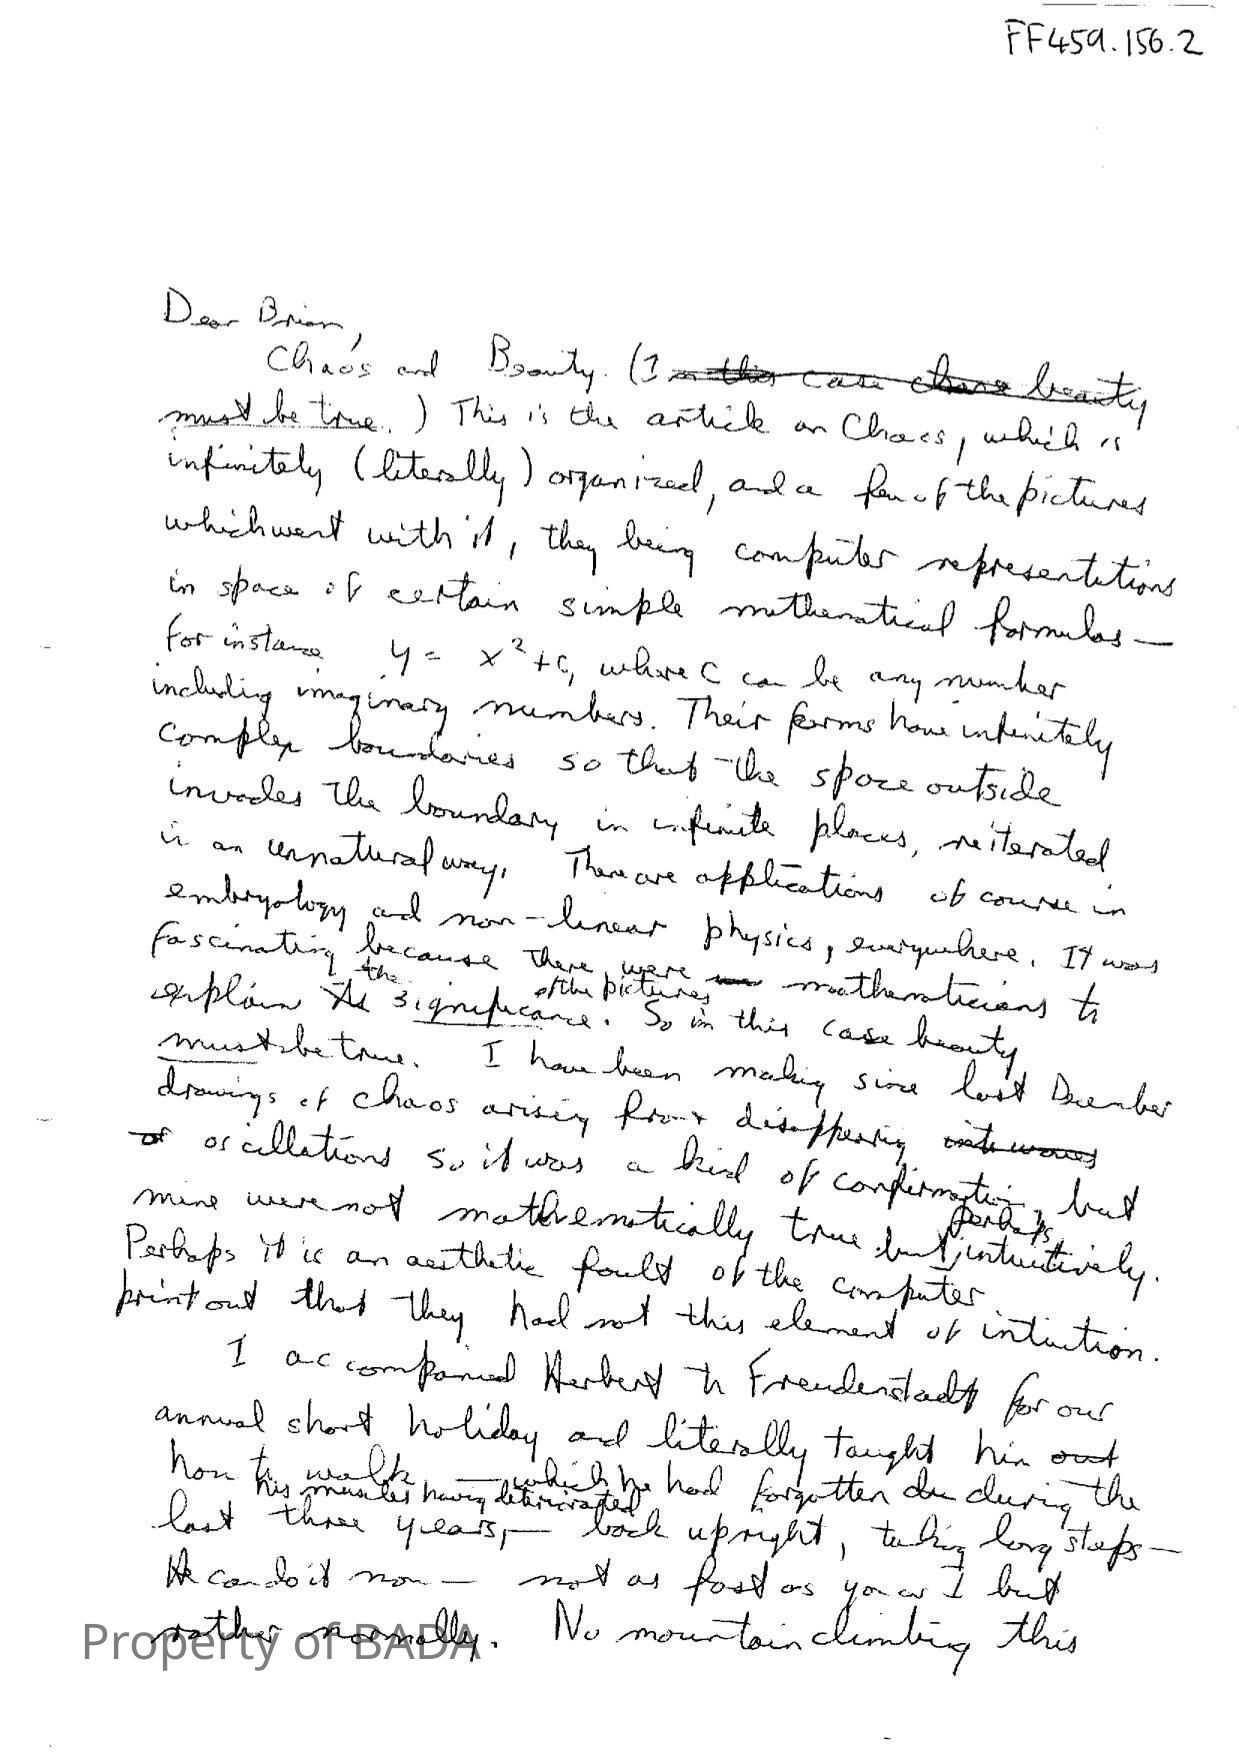 FF459.156.2
Dear Brian,
Chaos and Beauty. (In this case chaos beauty
must be true.) This is the article on Chaos, which is
infinitely (literally) organized, and a few of the pictures
which went with it, they being computer representations
in space of certain simple mathematical formulas —
for instance y = x²+c, where C can be any number
including imaginary numbers. Their forms have infinitely
complex boundaries so that the space outside
invades the boundary in infinite places, reiterated
in an unnatural way. There are applications of course in
embryology and non-linear physics, everywhere. It was
fascinating because there were mathematicians to
explain the significance of the pictures. So in this case beauty
must be true. I have been making since last December
drawings of chaos arising from + disappearing into waves
or oscillations so it was a kind of confirmation, but
mine were not mathematically true but, perhaps, intuitively.
Perhaps it is an aesthetic fault of the computer
print out that they had not this element of intuition.
I accompanied Herbert to Freudenstadt for our
annual short holiday and literally taught him out
how to walk — which he had forgotten du during the
last three years, his muscles having deteriorated — back upright, taking long steps —
He can do it now — not as fast as you or I but
rather normally. No mountain climbing this
Property of BADA